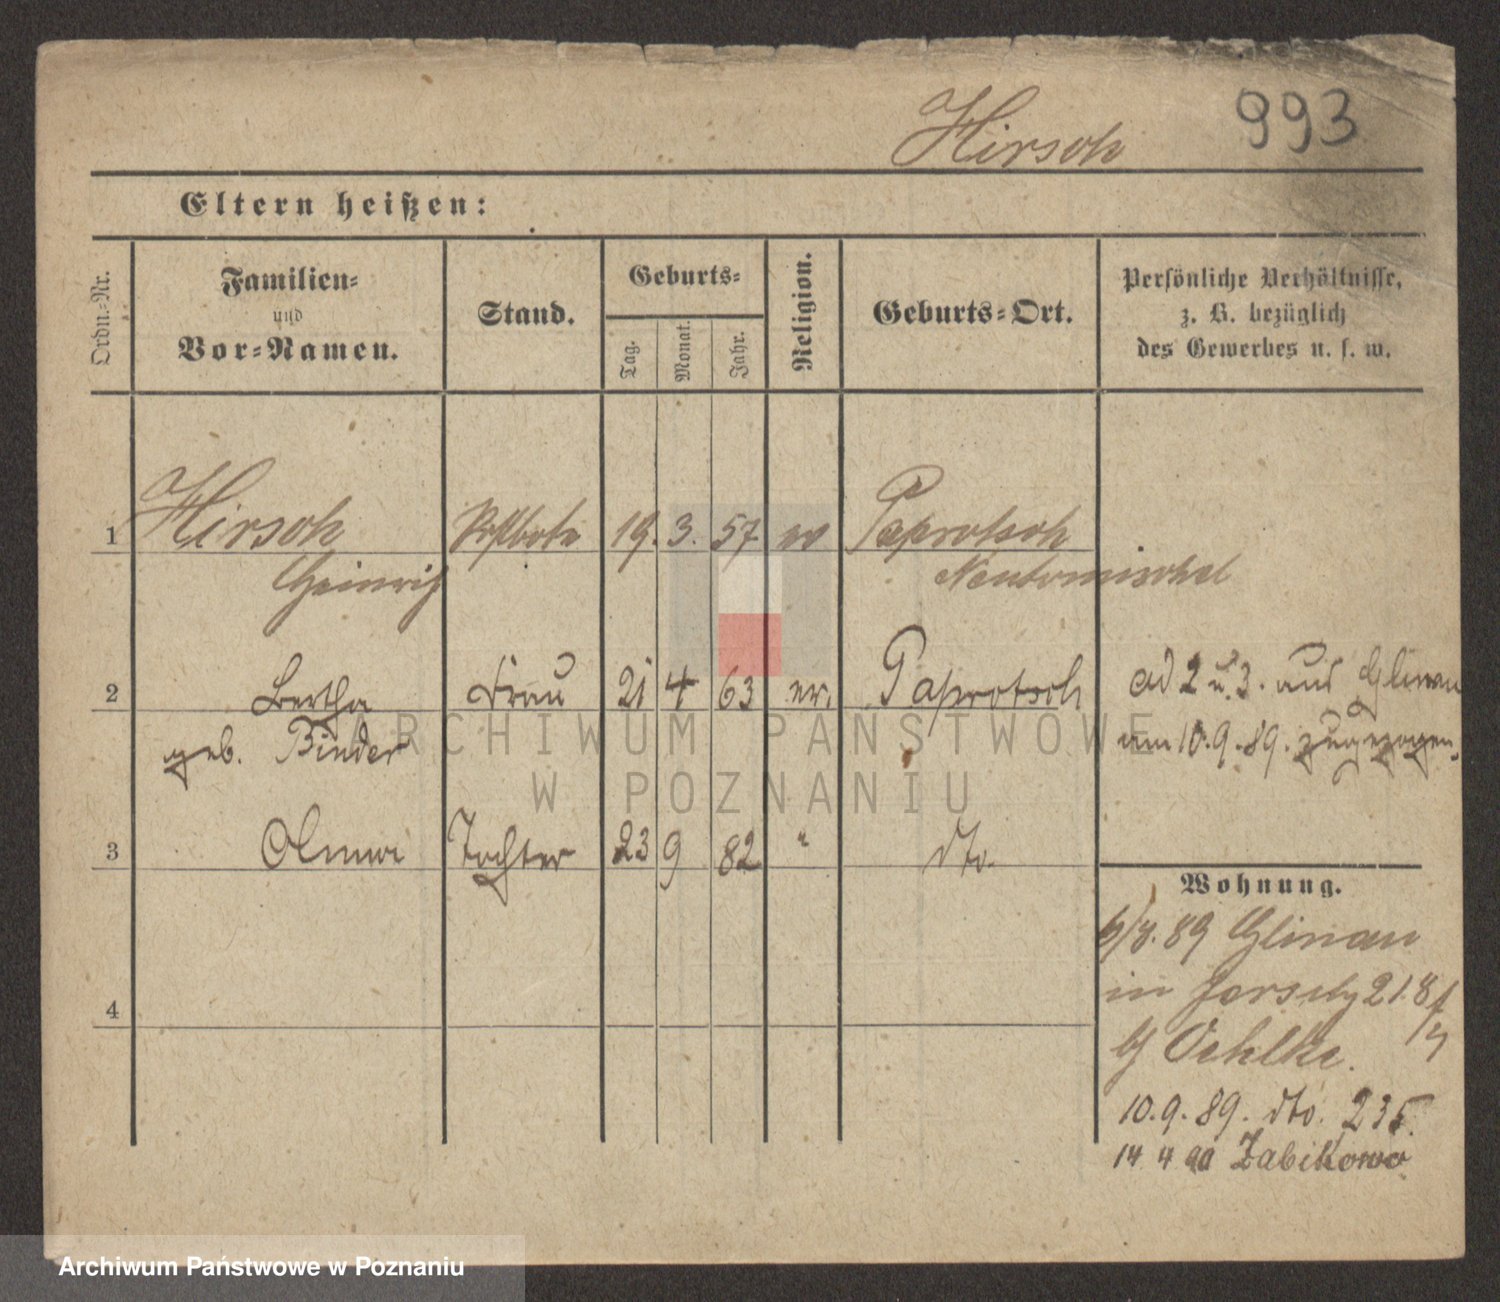 Hirsch 993
Eltern heißen:
Ordn.-Nr.
Familien-
und
Vor-Namen.
Stand.
Geburts-
Tag.
Monat.
Jahr.
Religion.
Geburts-Ort.
Persönliche Verhältnisse,
z. B. bezüglich
des Gewerbes u. s. w.
1 Hirsch Postbote 19. 3. 57 ev Paprotsch
Heinrich Neutomischel
2 Bertha Frau 21 4 63 ev. Paprotsch
geb. Binder
ad 2 u. 3. aus Glinau
am 10.9.89. zugezogen.
3 Emma Tochter 23 9 82 " dto.
4
Wohnung.
89 Glinau
in Jersitz 21.8
b/ Oehlke.
10.9.89. dto. 235.
14 4 90 Zabikowo
ARCHIWUM PAŃSTWOWE
W POZNANIU
Archiwum Państwowe w Poznaniu